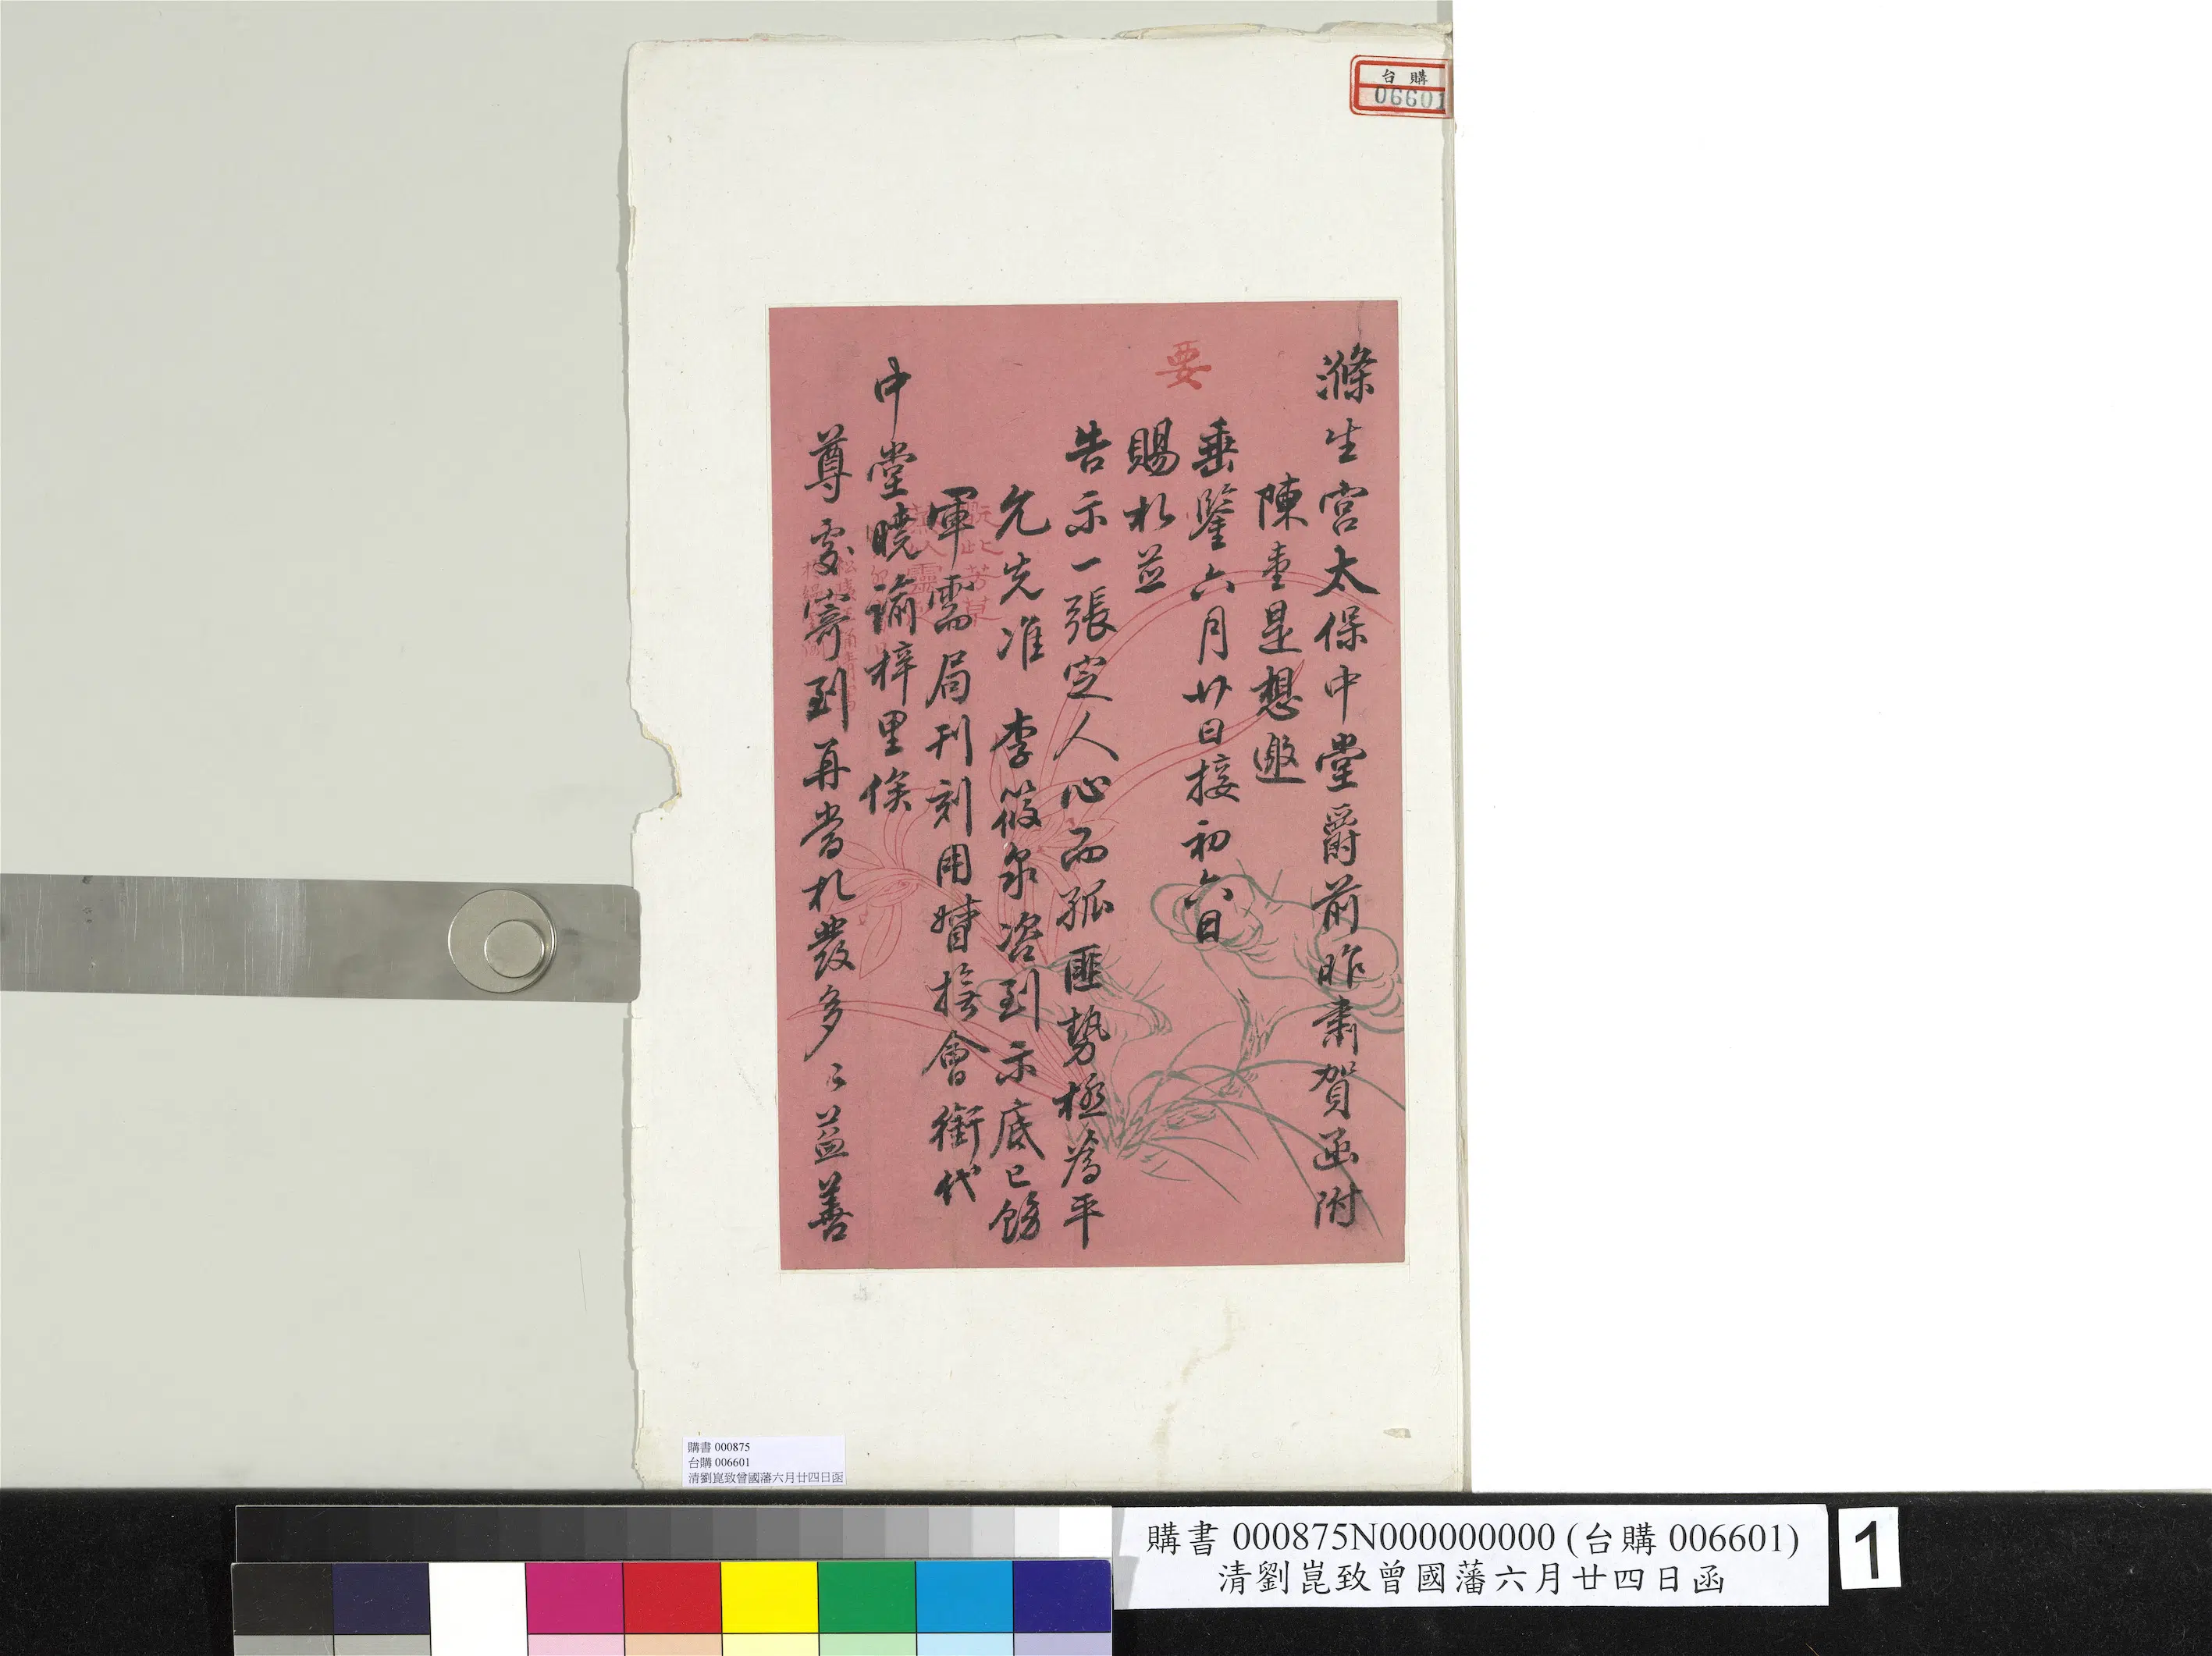 台購
06601
滌生宮太保中堂爵前昨肅賀函附
陳壹是想邀
垂鑒六月廿日接初六日
要
賜札並
告示一張定人心而孤匪勢極為平
允先准 李筱泉咨到示底已飭
軍需局刊刻用督撫會銜代
中堂曉諭梓里俟
尊處寄到再當札發多々益善
購書 000875
台購 006601
清劉崑致曾國藩六月廿四日函
購書 000875N000000000 (台購 006601)
清劉崑致曾國藩六月廿四日函
1